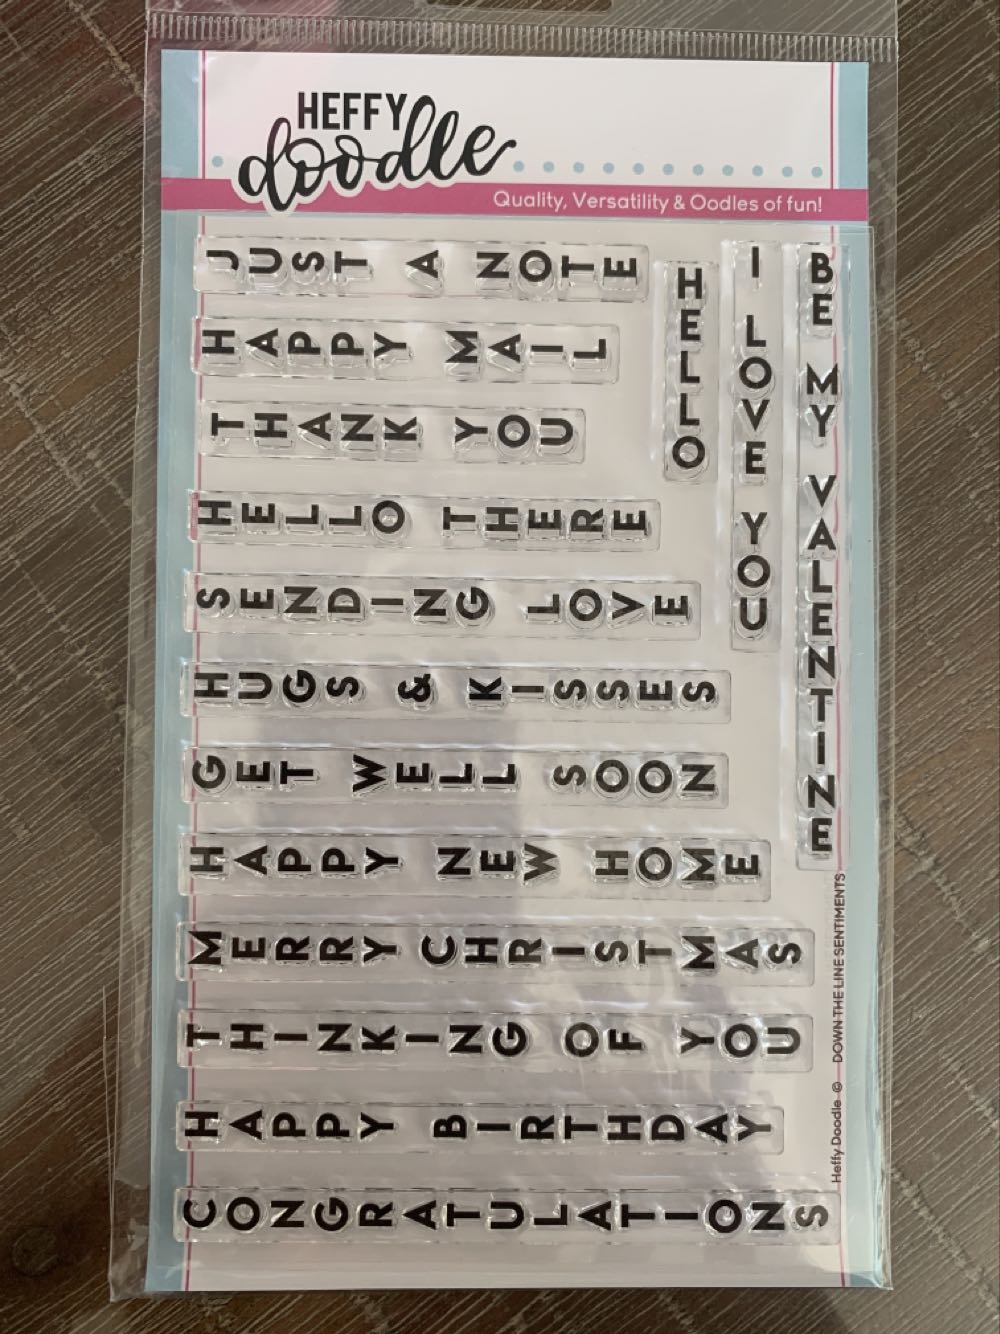 HEFFY
doodle
Quality, Versatility & Oodles of fun!
JUST A NOTE
HAPPY MAIL
THANK YOU
HELLO THERE
SENDING LOVE
HUGS & KISSES
GET WELL SOON
HAPPY NEW HOME
MERRY CHRISTMAS
THINKING OF YOU
HAPPY BIRTHDAY
CONGRATULATIONS
HELLO
I LOVE YOU
BE MY VALENTINE
Heffy Doodle © DOWN THE LINE SENTIMENTS